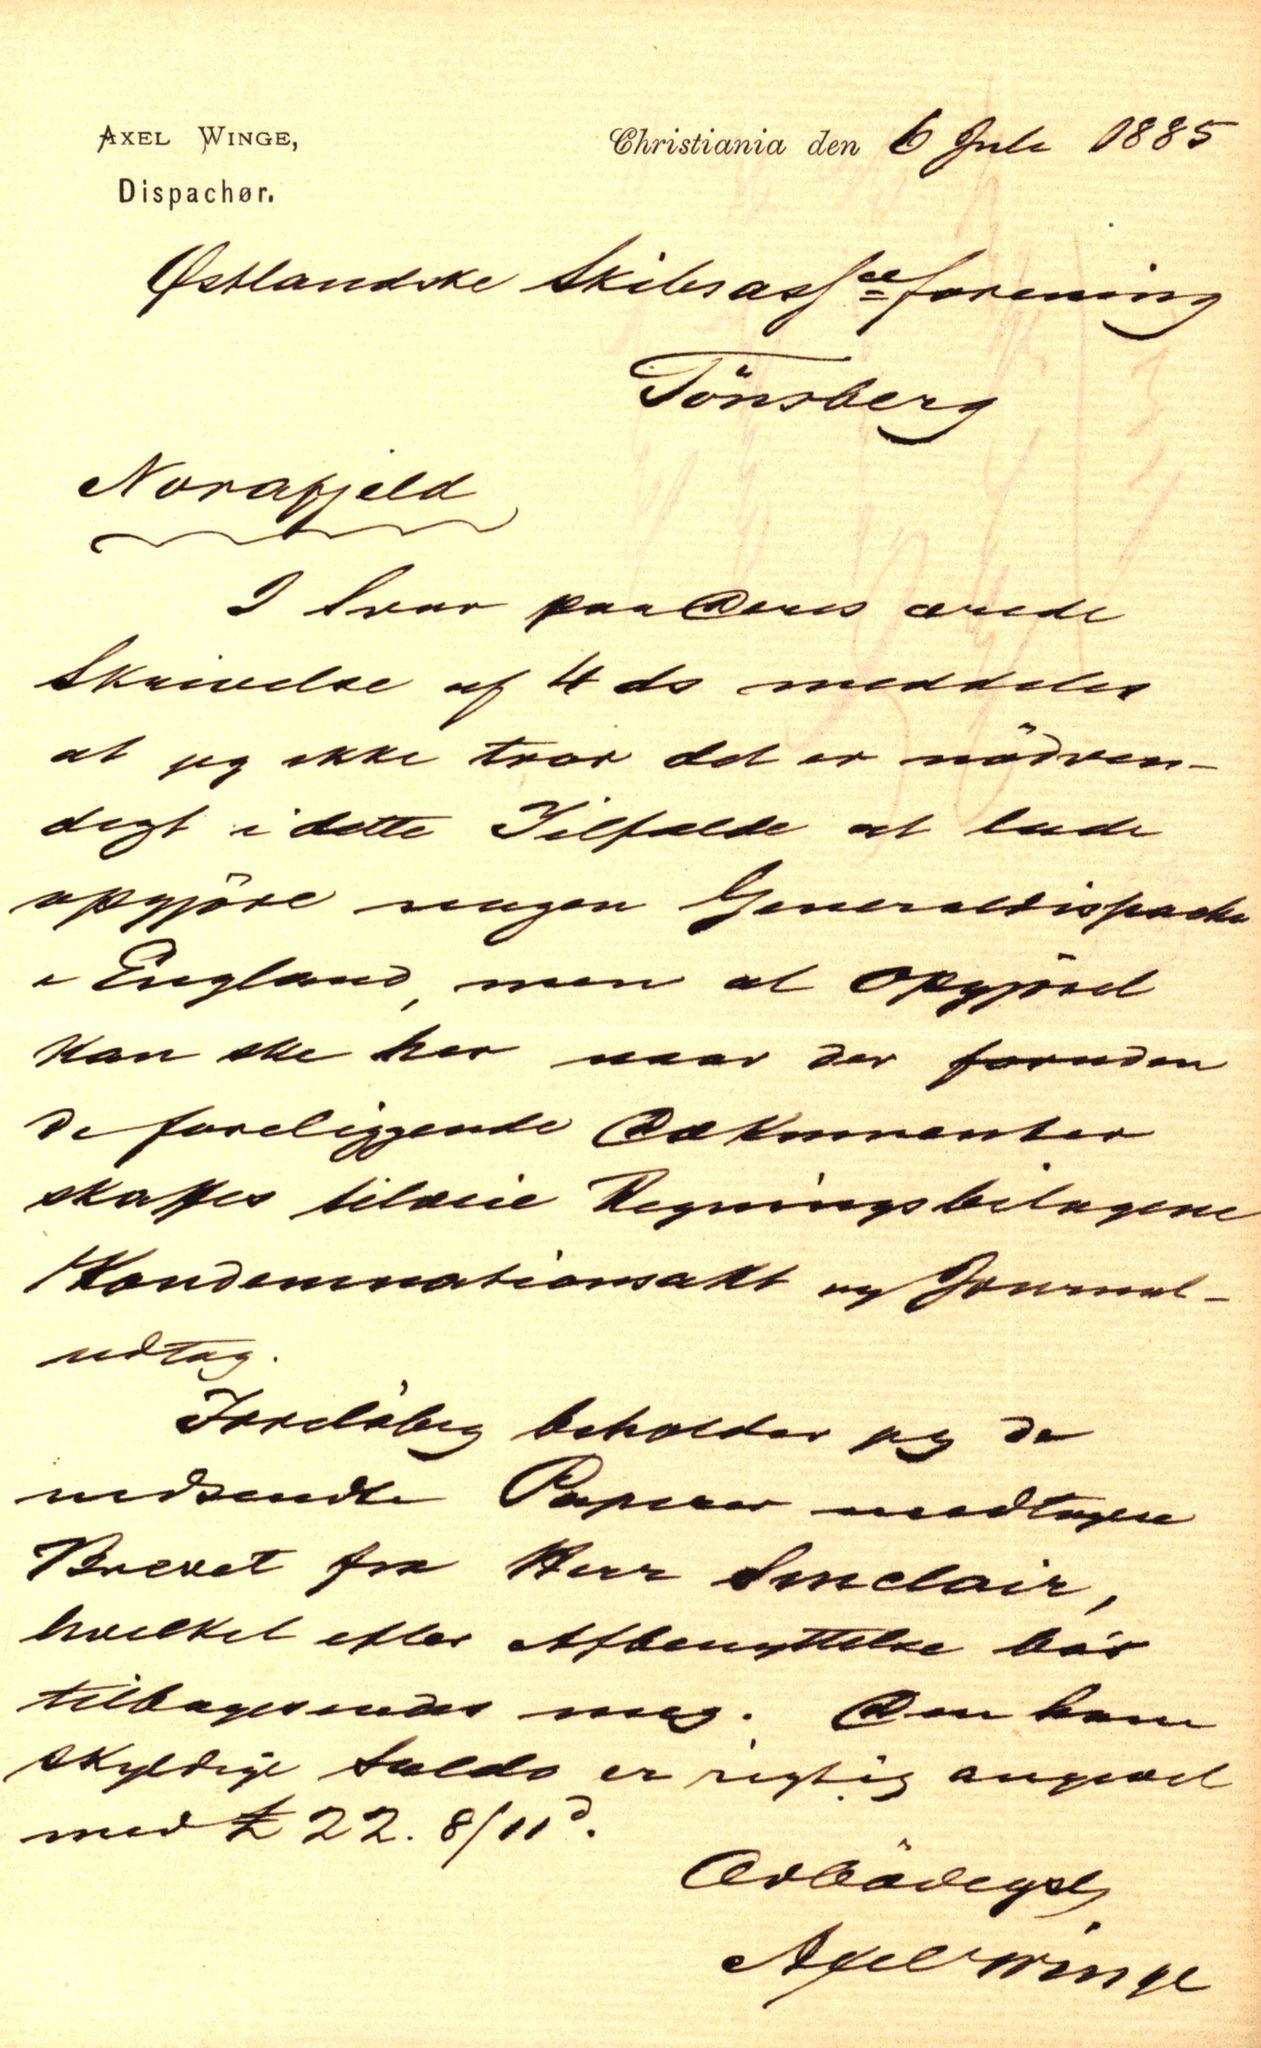 AXEL WINGE,
Dispachør.
Christiania den 6 Juli 1885
Østlandske Skibsassce forening
Tönsberg
Norafjeld
I Svar paa Deres ærede
Skrivelse af 4 ds meddeles
at jeg ikke tror det er nödven-
digt i dette Tilfælde at lade
opgjöre nogen Generaldispache
i England, men at Opgjöret
kan ske her naar der foruden
de foreliggende Dokumenter
skaffes tilveie Regningsbilagene
Kondemnationsakt og Journal-
udtog.
Forelöbig beholder jeg de
nedsendte Papirer undtagen
Brevet fra Herr Sinclair,
hvilket efter Afbenyttelse bör
tilbagesendes mig. Den ham
skyldige Saldo er rigtig angivet
med £ 22. 8/11d.
Ærbödigst
Axel Winge